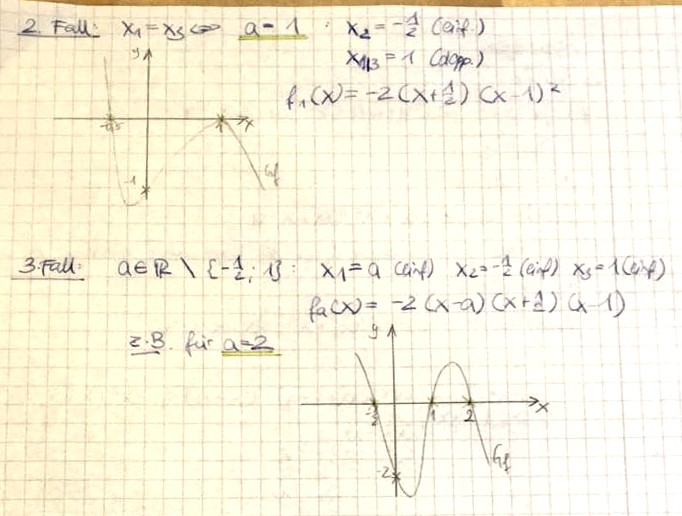 2. Fall: x₁ = x₃ ⇔ a = 1 : x₂ = -1/2 (einf.)
x₁/₃ = 1 (dopp.)
f₁(x) = -2 (x+1/2) (x-1)²
y
-0,5 1 x
-1
Gf
3. Fall: a ∈ ℝ \ {-1/2; 1} : x₁ = a (einf) x₂ = -1/2 (einf) x₃ = 1 (einf)
fa(x) = -2 (x-a) (x+1/2) (x-1)
y
z.B. für a=2
-1/2 1 2 x
Gf
-2